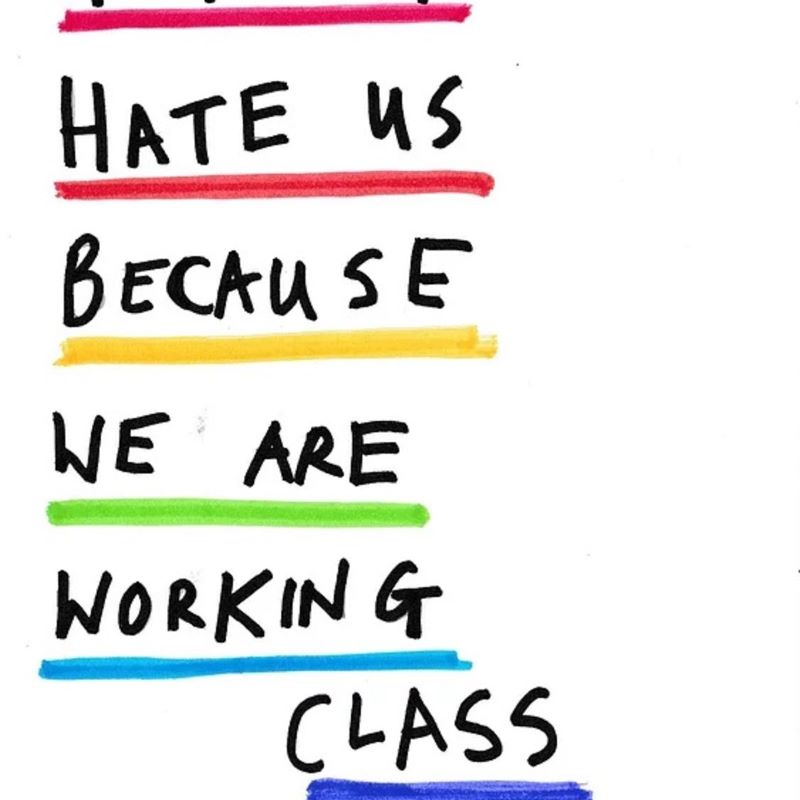 HATE US
BECAUSE
WE ARE
WORKING
CLASS